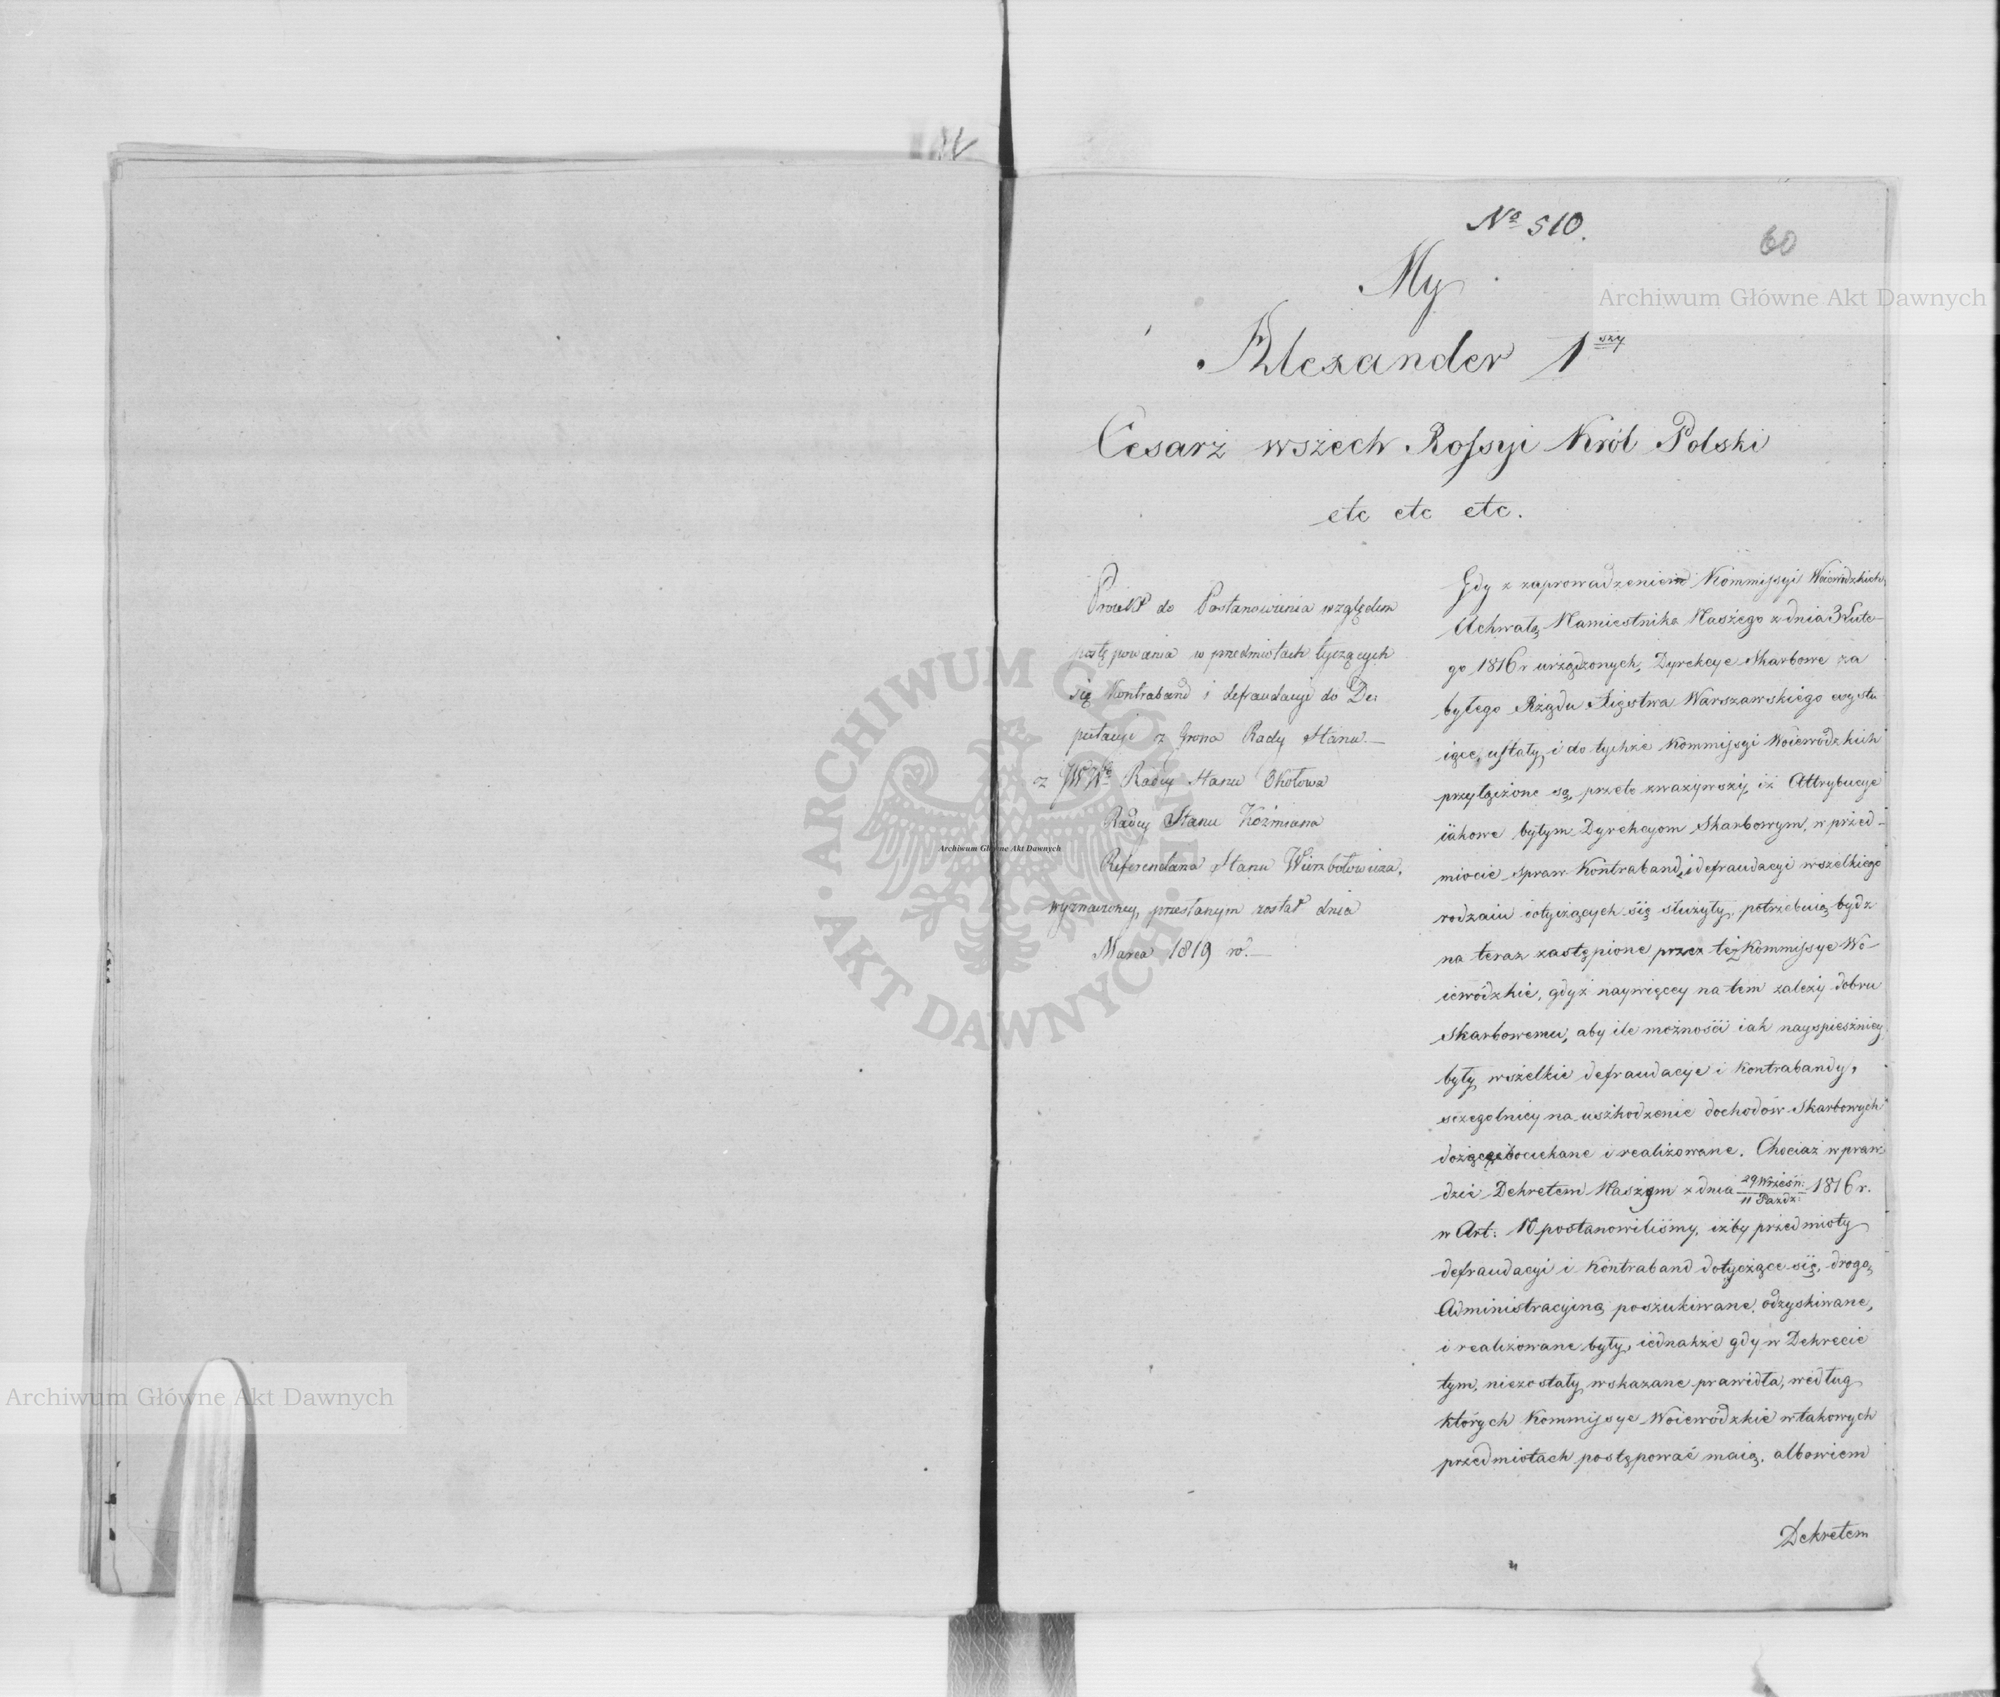 No 510.
60
My
Alexander 1szy
Cesarz wszech Rossyi Król Polski
etc etc etc.
Proiekt do Postanowienia względem
postępowania w przedmiotach tyczących
się Kontraband i defraudacyi do De:
putacyi z Grona Rady Stanu.—
z JW Radcy Stanu Okołowa
Radcy Stanu Koźmiana
Referendarza Stanu Wierzbołowicza,
wyznaczoney, przesłanym został dnia
Marca 1819 ro.—
Gdy z zaprowadzeniem Kommissyi Woiewódzkich
Uchwałą Namiestnika Naszego z dnia 3 Lute-
go 1816 r urządzonych, Dyrekcye Skarbowe za
byłego Rządu Xięstwa Warszawskiego exystu
iące, ustały, i do tychże Kommissyi Woiewodzkich
przyłączone są, przeto zważywszy, iż Attrybucye
iakowe byłym Dyrekcyom Skarbowym, w przed-
miocie spraw Kontraband, i defraudacyi wszelkiego
rodzaiu dotyczących się służyły, potrzebuią bydz
na teraz zastępione przez też Kommissye Wo-
iewódzkie, gdyż naywięcey na tem zależy dobru
Skarbowemu, aby ile możności iak nayspieszniey
były wszelkie defraudacye i Kontrabandy,
szczegolniey na uszkodzenie dochodów Skarbowych
dociekane i realizowane. Chociaż wpraw
dzie Dekretem Naszym z dnia 29 Wrześn: / 11 Pazdz: 1816 r.
w Art: 10 postanowiliśmy, iżby przedmioty
defraudacyi i Kontraband dotyczące się, drogą
Administracyiną poszukiwane, odzyskiwane,
i realizowane były, iednakże gdy w Dekrecie
tym, niezostały wskazane prawidła, według
których Kommissye Woiewódzkie w takowych
przedmiotach postępować maią, albowiem
Dekretem
Archiwum Główne Akt Dawnych
Archiwum Główne Akt Dawnych
Archiwum Główne Akt Dawnych
ARCHIWUM GŁÓWNE AKT DAWNYCH